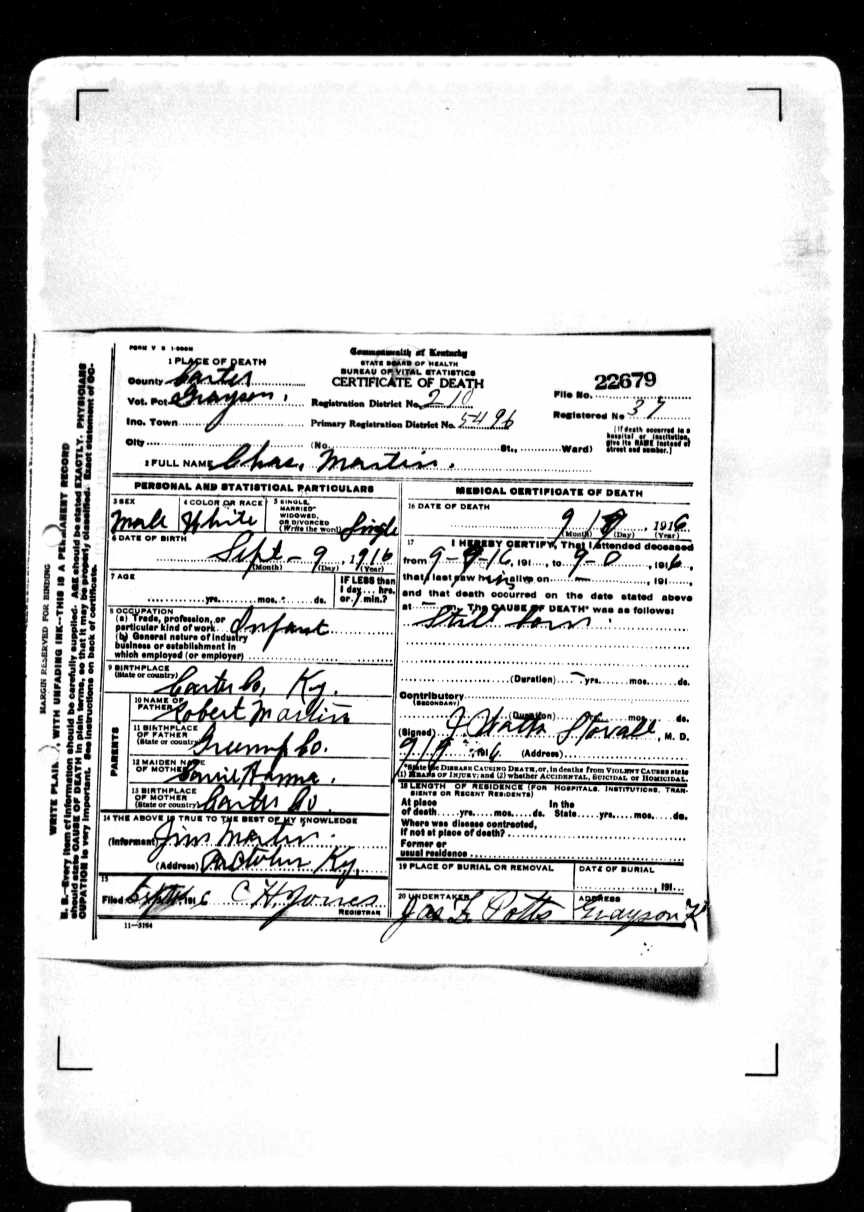 FORM V S 1-500M
Commonwealth of Kentucky
STATE BOARD OF HEALTH
BUREAU OF VITAL STATISTICS
CERTIFICATE OF DEATH
1 PLACE OF DEATH
County Carter
Vot. Pct Grayson,
Inc. Town
City
Registration District No. 210
Primary Registration District No. 5496
(No. St., Ward)
File No. 22679
Registered No 37
(If death occurred in a
hospital or institution,
give its NAME instead of
street and number.)
2 FULL NAME Chas. Martin.
PERSONAL AND STATISTICAL PARTICULARS
3 SEX
Male
4 COLOR OR RACE
White
5 SINGLE,
MARRIED
WIDOWED,
OR DIVORCED
(Write the word) Single
6 DATE OF BIRTH
Sept - 9, 1916
(Month) (Day) (Year)
7 AGE
yrs. mos. ds.
IF LESS than
1 day... hrs.
or min.?
8 OCCUPATION
(a) Trade, profession, or
particular kind of work Infant
(b) General nature of industry
business or establishment in
which employed (or employer)
9 BIRTHPLACE
(State or country)
Carter Co, Ky.
PARENTS
10 NAME OF
FATHER Robert Martin
11 BIRTHPLACE
OF FATHER
(State or country) Co.
12 MAIDEN NAME
OF MOTHER
13 BIRTHPLACE
OF MOTHER
(State or country) Carter Co
14 THE ABOVE IS TRUE TO THE BEST OF MY KNOWLEDGE
(Informant) Jim Martin.
(Address) Ky,
15
Filed 1916 C H Jones
REGISTRAR
11—3184
MEDICAL CERTIFICATE OF DEATH
16 DATE OF DEATH
9 9, 1916
(Month) (Day) (Year)
17 I HEREBY CERTIFY, That I attended deceased
from 9-9-16, 191..., to 9- , 1916.,
that I last saw h alive on — , 191...,
and that death occurred on the date stated above
at — The CAUSE OF DEATH* was as follows:
Still born.
(Duration) yrs. mos. ds.
Contributory
(SECONDARY)
(Duration) yrs. mos. ds.
(Signed) J Watts Stovall, M. D.
9/9 1916 (Address)
*State the DISEASE CAUSING DEATH, or, in deaths from VIOLENT CAUSES state
(1) MEANS OF INJURY; and (2) whether ACCIDENTAL, SUICIDAL or HOMICIDAL.
18 LENGTH OF RESIDENCE (FOR HOSPITALS, INSTITUTIONS, TRAN-
SIENTS OR RECENT RESIDENTS)
At place
of death yrs. mos. ds.
In the
State yrs. mos. ds.
Where was disease contracted,
if not at place of death?
Former or
usual residence
19 PLACE OF BURIAL OR REMOVAL
DATE OF BURIAL
, 191...
20 UNDERTAKER
Jas F. Potts
ADDRESS
Grayson K
MARGIN RESERVED FOR BINDING
WRITE PLAIN WITH UNFADING INK—THIS IS A PERMANENT RECORD
N. B.—Every item of information should be carefully supplied. AGE should be stated EXACTLY. PHYSICIANS
should state CAUSE OF DEATH in plain terms, so that it may be properly classified. Exact statement of OC-
CUPATION is very important. See instructions on back of certificate.